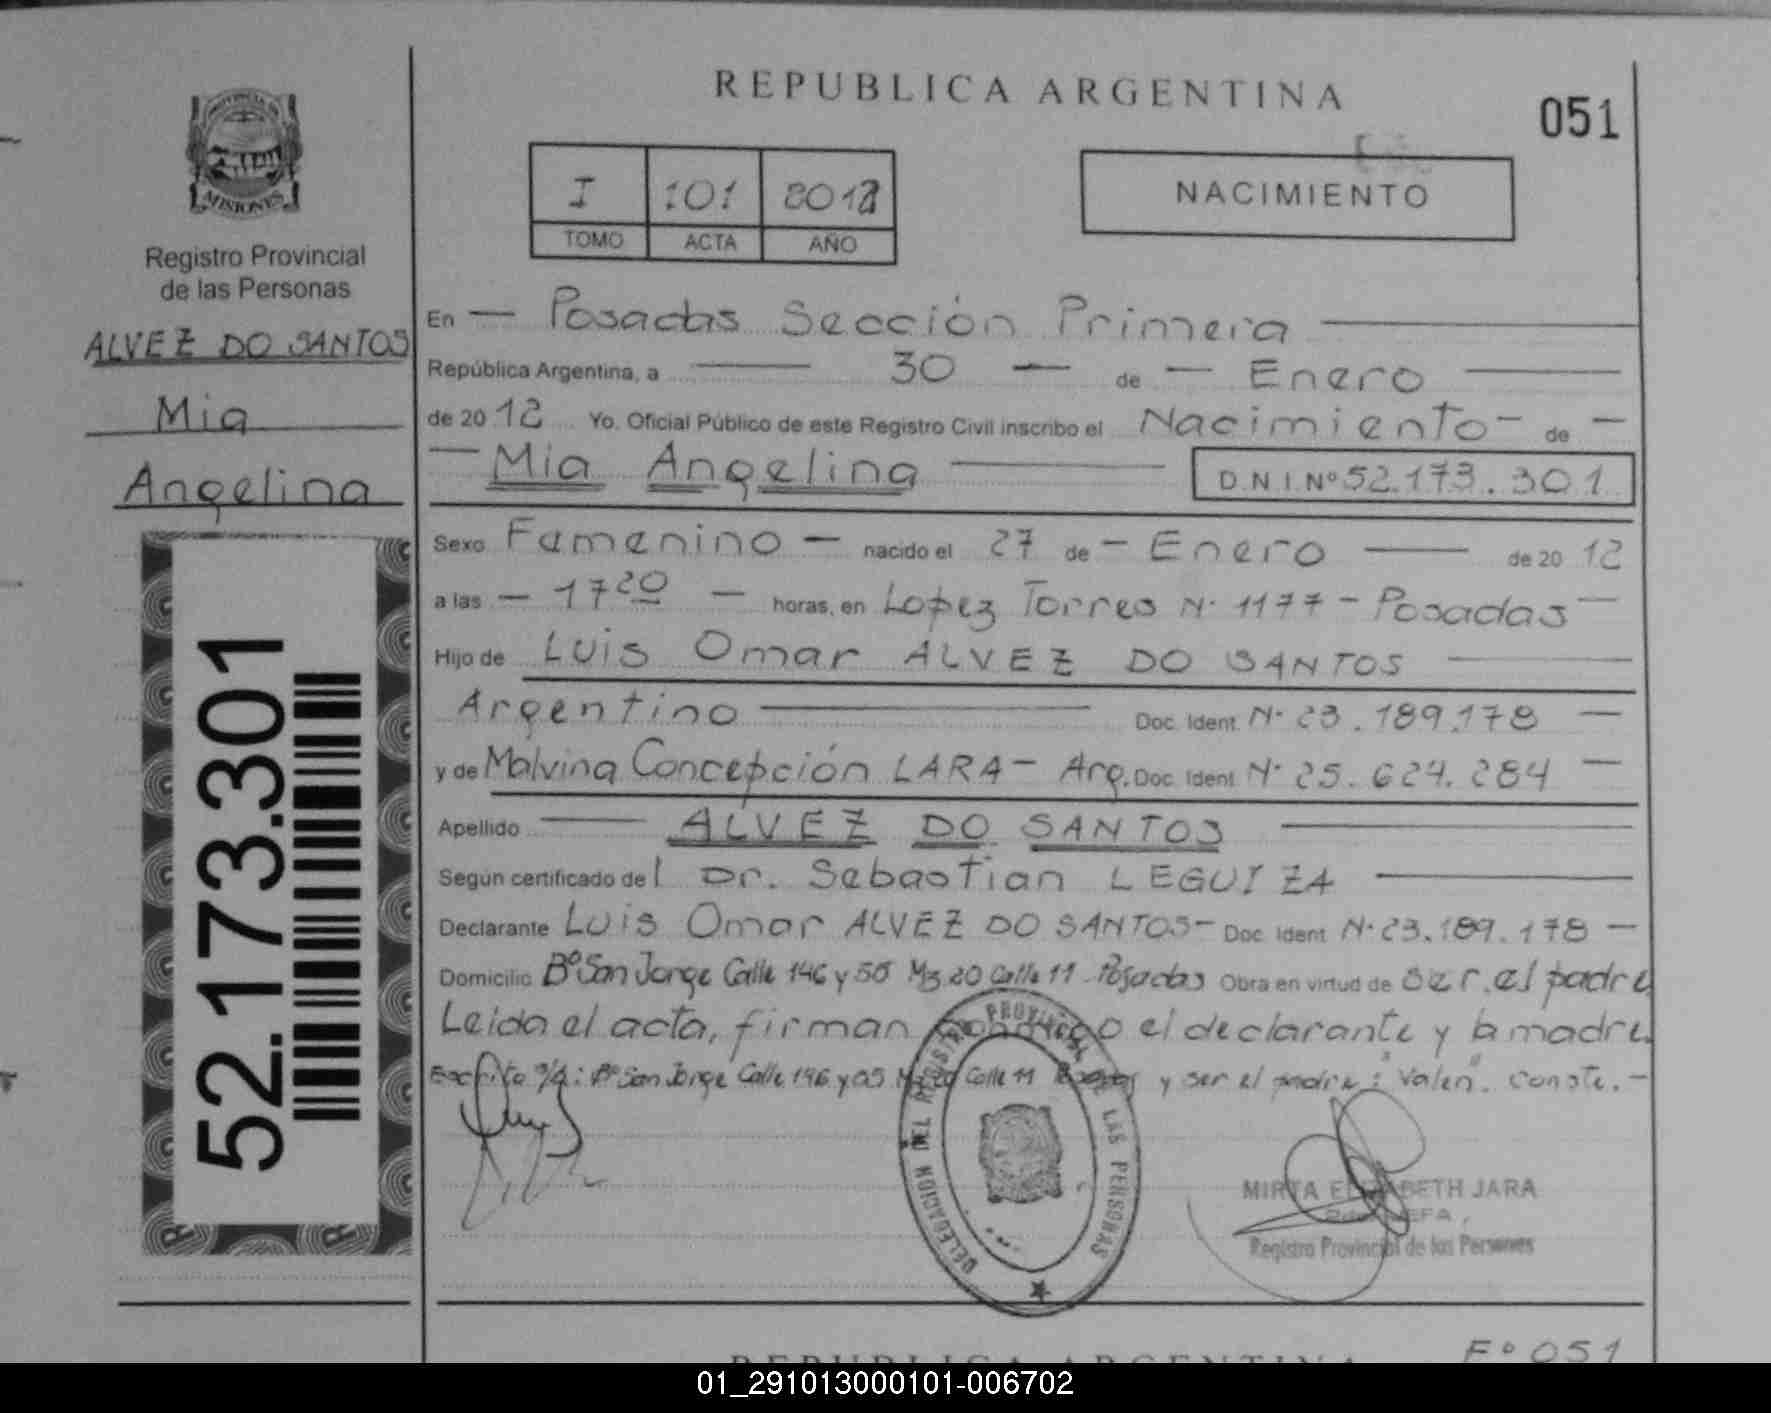 PROVINCIA DE
MISIONES
Registro Provincial
de las Personas
ALVEZ DO SANTOS
Mia
Angelina
52.173.301
REPUBLICA ARGENTINA
051
I 101 2012
TOMO ACTA AÑO
NACIMIENTO
En — Posadas Sección Primera —
República Argentina, a — 30 — de — Enero —
de 20 12 Yo. Oficial Público de este Registro Civil inscribo el Nacimiento — de —
— Mia Angelina — D.N.I.Nº 52.173.301
Sexo Femenino — nacido el 27 de — Enero — de 20 12
a las — 17 20 — horas, en Lopez Torres N· 1177 — Posadas —
Hijo de Luis Omar ALVEZ DO SANTOS —
Argentino — Doc. Ident. N· 23.189.178 —
y de Malvina Concepción LARA — Arg. Doc. Ident N· 25.624.284 —
Apellido — ALVEZ DO SANTOS —
Según certificado del Dr. Sebastian LEGUIZA —
Declarante Luis Omar ALVEZ DO SANTOS — Doc. Ident N· 23.189.178 —
Domicilio Bº San Jorge Calle 146 y 55 Mz 20 Calle 11 Posadas Obra en virtud de ser el padre
Leida el acta, firman conmigo el declarante y la madre.
Escrito s/r: Bº San Jorge Calle 146 y 55 Mz 20 Calle 11 Posadas y ser el padre: "Valen". Conste.—
DELEGACION DEL REGISTRO PROVINCIAL DE LAS PERSONAS
MIRTA ELIZABETH JARA
JEFA
Registro Provincial de las Personas
REPUBLICA ARGENTINA
Fº 051
01_291013000101-006702